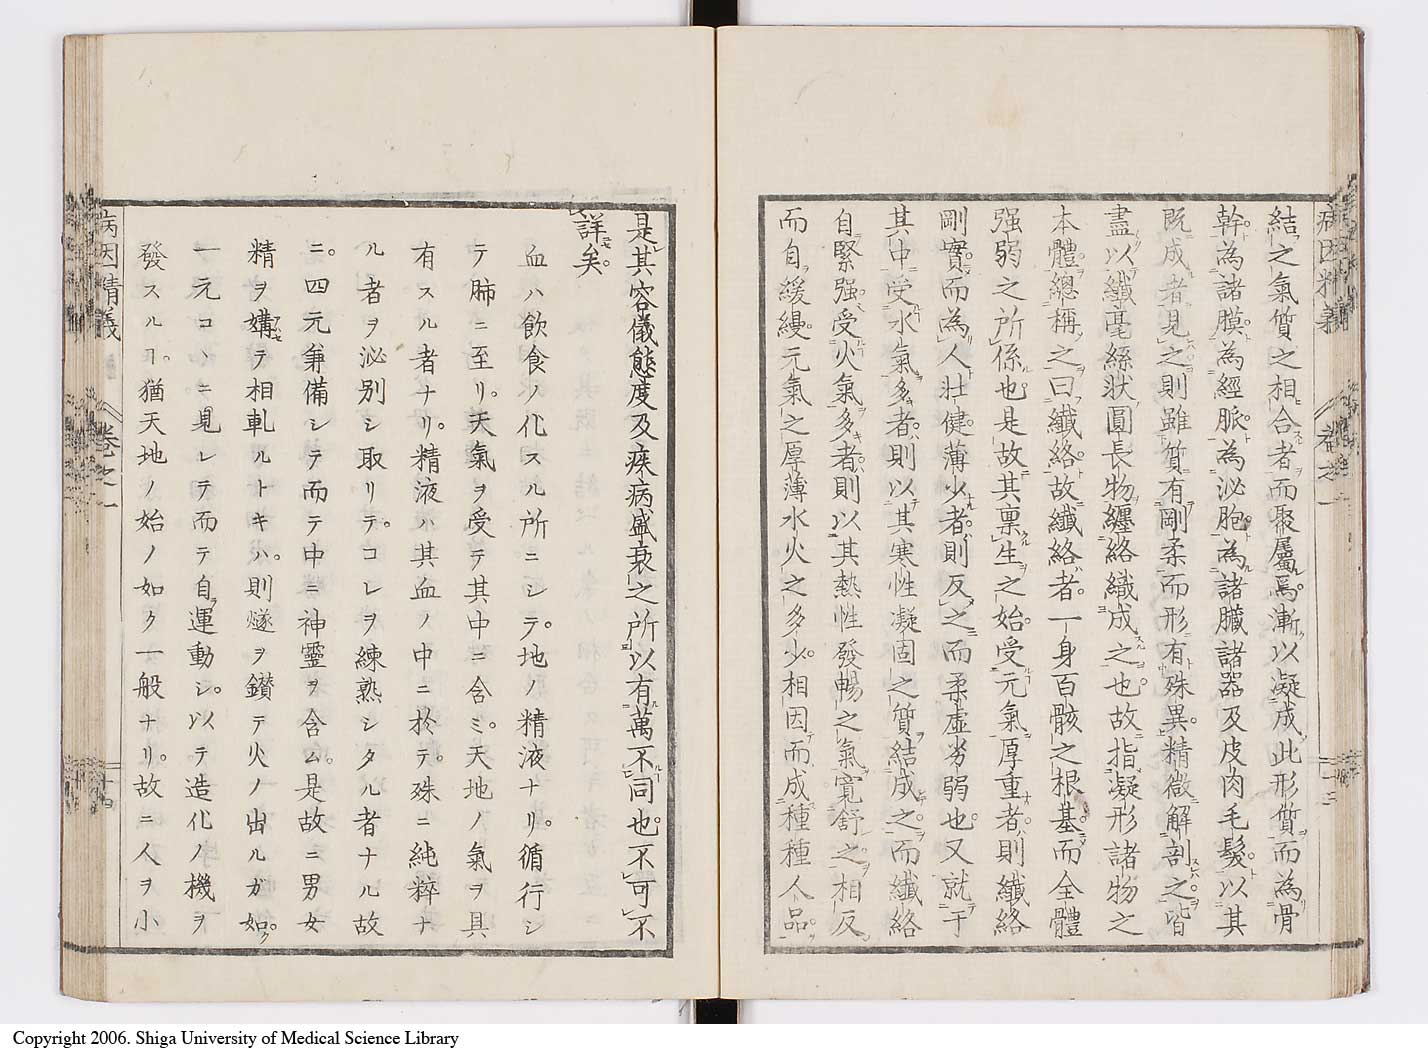 病因精義
卷之一
十三
結之氣質之相合者而聚屬焉漸以凝成此形質而為骨
幹為諸膜為經脈為泌胞為諸臟諸器及皮肉毛髮以其
既成者見之則雖質有剛柔而形有殊異精微解剖之皆
盡以纖毫絲狀圓長物纏絡織成之也故指凝形諸物之
本體總稱之曰纖絡故纖絡者一身百骸之根基而全體
强弱之所係也是故其稟生之始受元氣厚重者則纖絡
剛實而為人壯健薄少者則反之而柔虛劣弱也又就于
其中受水氣多者則以其寒性凝固之質結成之而纖絡
自緊强受火氣多者則以其熱性發暢之氣寬舒之相反
而自緩縵元氣之厚薄水火之多少相因而成種種人品
是其容儀態度及疾病盛衰之所以有萬不同也不可不
詳矣
血ハ飲食ノ化スル所ニシテ地ノ精液ナリ循行シ
テ肺ニ至リ天氣ヲ受テ其中ニ含ミ天地ノ氣ヲ具
有スル者ナリ精液ハ其血ノ中ニ於テ殊ニ純粹ナ
ル者ヲ泌別シ取リテコレヲ練熟シタル者ナル故
ニ四元兼備シテ而テ中ニ神靈ヲ含ム是故ニ男女
精ヲ媾テ相軋ルトキハ則燧ヲ鑚テ火ノ出ルガ如ク
一元コヽニ見レテ而テ自運動シ以テ造化ノ機ヲ
發スルヿ猶天地ノ始ノ如ク一般ナリ故ニ人ヲ小
病因精義
卷之一
十四
Copyright 2006. Shiga University of Medical Science Library